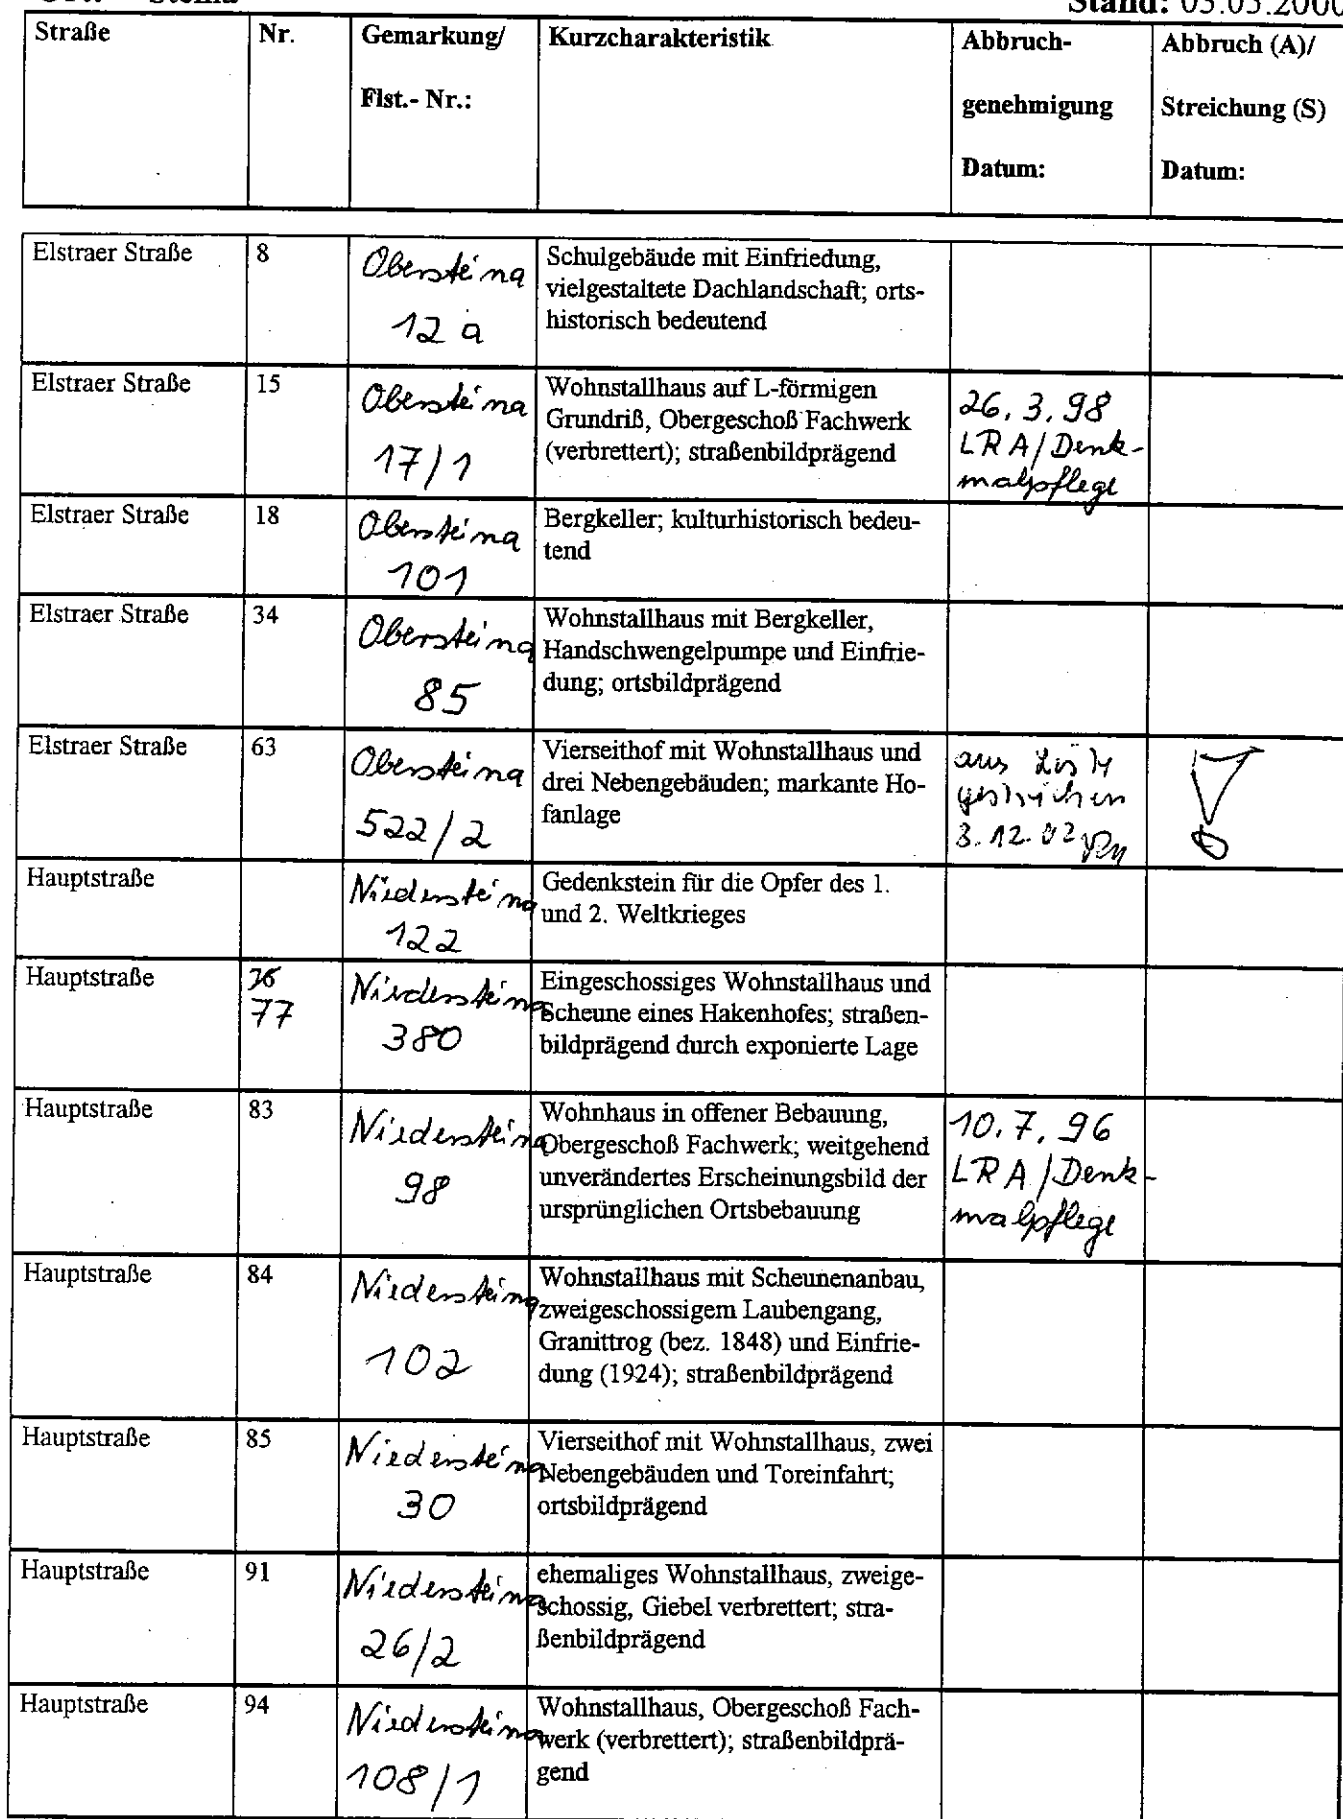 Stand: 03.03.2000
Straße Nr. Gemarkung/ Kurzcharakteristik Abbruch- Abbruch (A)/
Flst.- Nr.: genehmigung Streichung (S)
Datum: Datum:
Elstraer Straße 8 Obersteina Schulgebäude mit Einfriedung,
vielgestaltete Dachlandschaft; orts-
12 a historisch bedeutend
Elstraer Straße 15 Obersteina Wohnstallhaus auf L-förmigen 26.3.98
Grundriß, Obergeschoß Fachwerk LRA/Denk-
17/1 (verbrettert); straßenbildprägend malpflege
Elstraer Straße 18 Obersteina Bergkeller; kulturhistorisch bedeu-
101 tend
Elstraer Straße 34 Obersteina Wohnstallhaus mit Bergkeller,
Handschwengelpumpe und Einfrie-
85 dung; ortsbildprägend
Elstraer Straße 63 Obersteina Vierseithof mit Wohnstallhaus und aus Liste
drei Nebengebäuden; markante Ho- gestrichen
522/2 fanlage 3.12.02
Hauptstraße Niedersteina Gedenkstein für die Opfer des 1.
122 und 2. Weltkrieges
Hauptstraße 76 Niedersteina Eingeschossiges Wohnstallhaus und
77 Scheune eines Hakenhofes; straßen-
380 bildprägend durch exponierte Lage
Hauptstraße 83 Niedersteina Wohnhaus in offener Bebauung, 10.7.96
Obergeschoß Fachwerk; weitgehend LRA/Denk-
98 unverändertes Erscheinungsbild der malpflege
ursprünglichen Ortsbebauung
Hauptstraße 84 Niedersteina Wohnstallhaus mit Scheunenanbau,
zweigeschossigem Laubengang,
102 Granittrog (bez. 1848) und Einfrie-
dung (1924); straßenbildprägend
Hauptstraße 85 Niedersteina Vierseithof mit Wohnstallhaus, zwei
Nebengebäuden und Toreinfahrt;
30 ortsbildprägend
Hauptstraße 91 Niedersteina ehemaliges Wohnstallhaus, zweige-
schossig, Giebel verbrettert; stra-
26/2 ßenbildprägend
Hauptstraße 94 Niedersteina Wohnstallhaus, Obergeschoß Fach-
werk (verbrettert); straßenbildprä-
108/1 gend